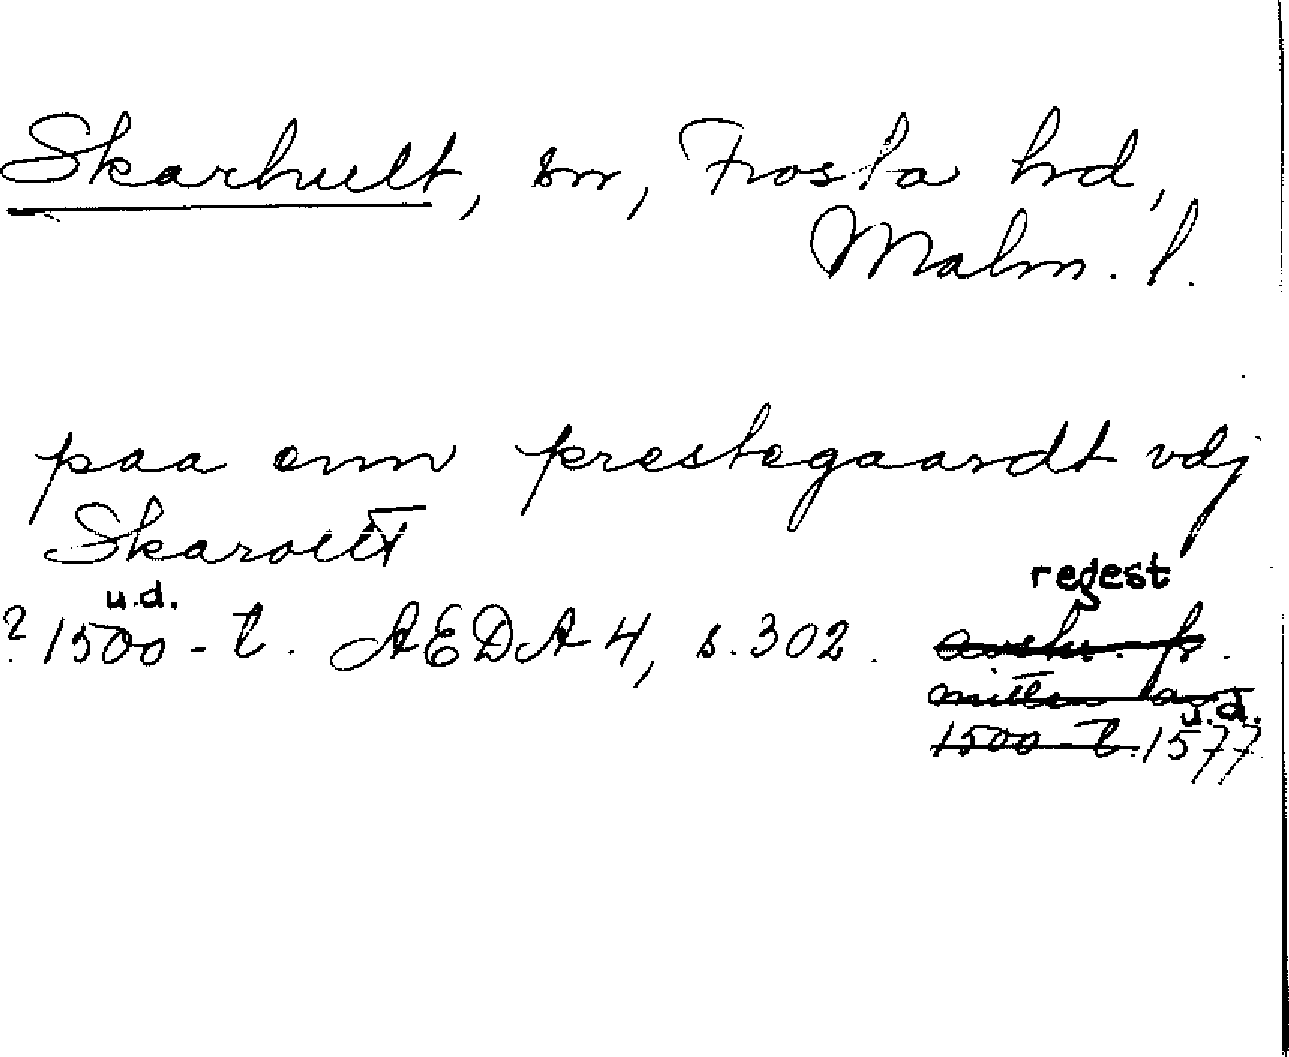 Skarhult, sn, Frosta hd,
Malm. l.
paa enn prestegaardt vdj
Skaroltt
u.d. regest
? 1500-t. AEDA 4, s. 302. avskr. fr.
mitten av u.d.
1500-t. 1577